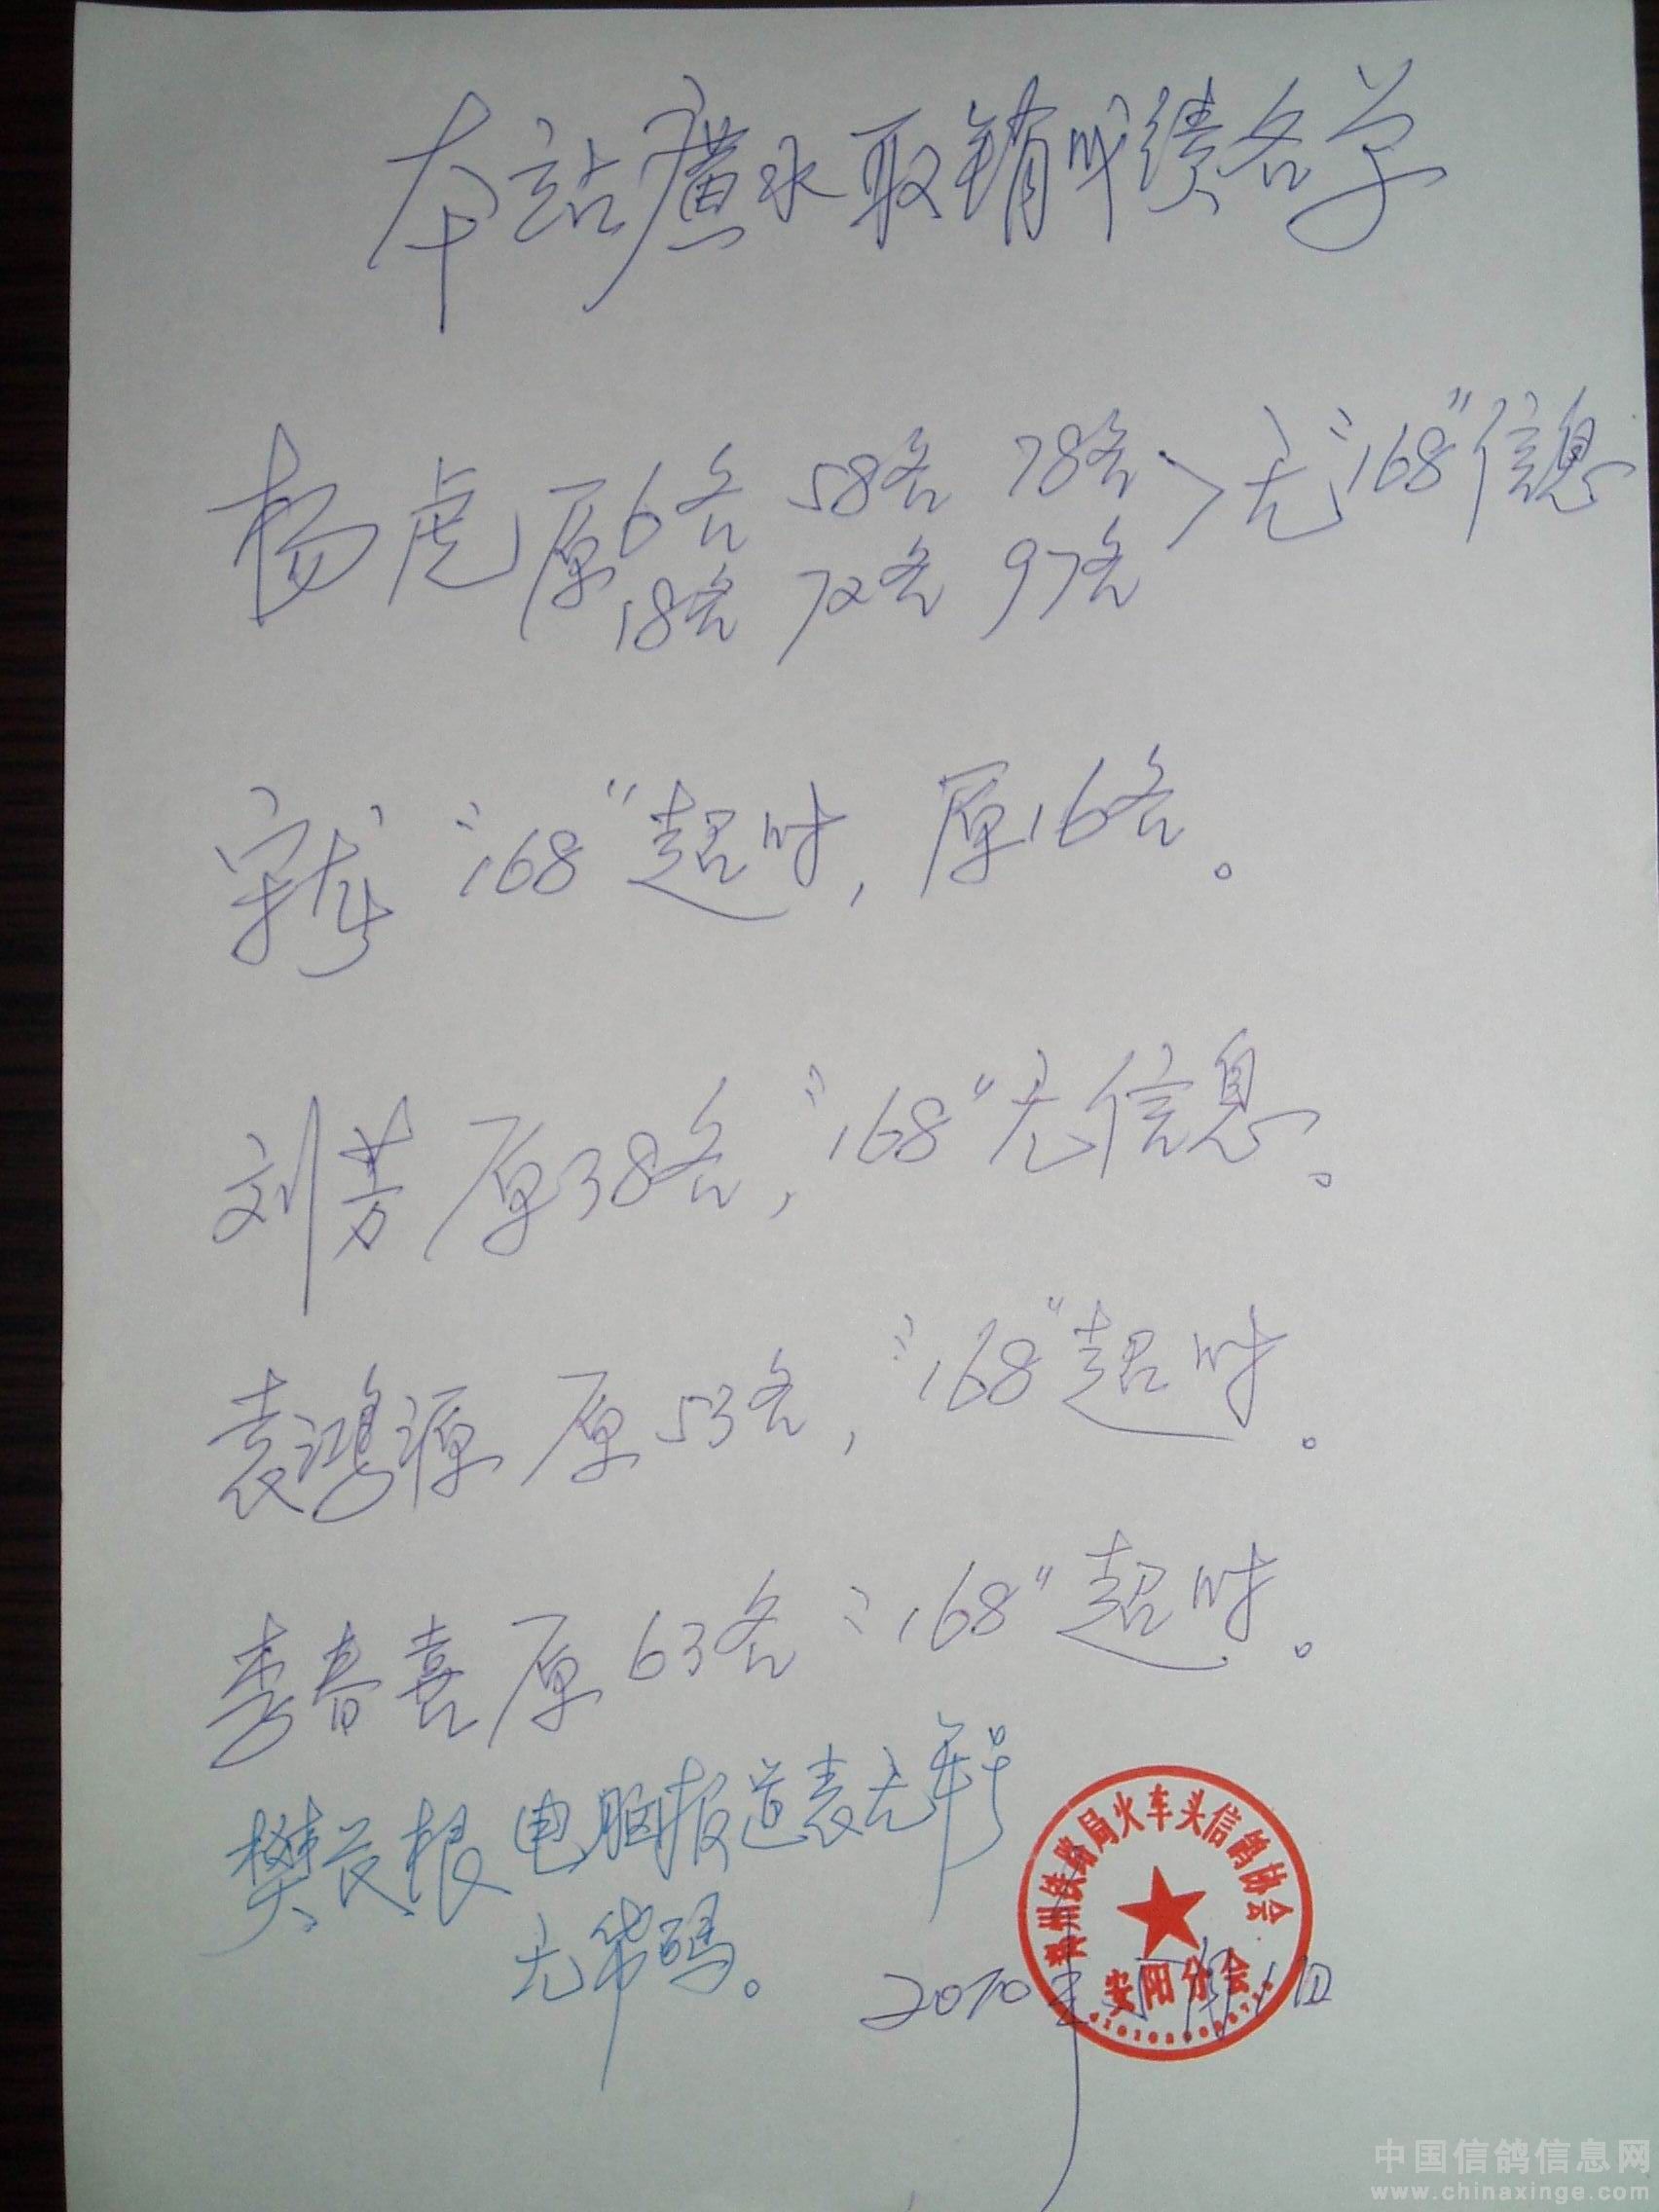 本站广水取销成绩名单
杨虎原6名 58名 78名 > 无"168"信息
18名 72名 97名
宋龙"168"超时，原16名。
刘芳原38名，"168"无信息。
袁鸿源 原53名，"168"超时。
李春喜原63名"168"超时。
樊长根 电脑报道表无章号
无华码。
郑州铁路局火车头信鸽协会
安阳分会
2010年 月 日
中国信鸽信息网
www.chinaxinge.com